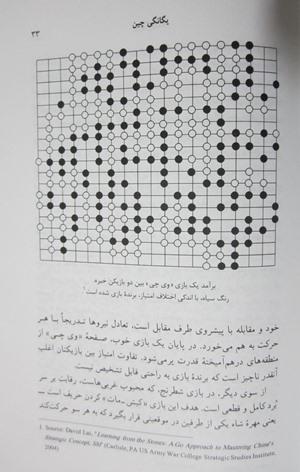 یگانگی چین
۳۳
برآمد یک بازی «وی چی» بین دو بازیکن خبره
رنگ سیاه، با اندکی اختلاف امتیاز، برندهٔ بازی شده است.¹
خود و مقابله با پیشروی طرف مقابل است، تعادل نیروها تدریجاً با هر
حرکت به هم می‌خورد. در پایان یک بازی خوب، صفحهٔ «وی چی» از
منطقه‌های درهم‌آمیختهٔ قدرت پر می‌شود. تفاوت امتیاز بین بازیکنان اغلب
آنقدر ناچیز است که برندهٔ بازی به راحتی قابل تشخیص نیست
از سوی دیگر، در بازی شطرنج، که محبوب غربی‌هاست، رقابت بر سر
بُرد کامل و قطعی است. هدف این بازی «کیش-مات» کردن حریف است
یعنی مهرهٔ شاه یکی از طرفین در موقعیتی قرار بگیرد که به هر سو حرکت‌کند
1. Source: David Lai, "Learning from the Stones: A Go Approach to Mastering China's
Strategic Concept, Shi" (Carlisle, PA US Army War College Strategic Studies Institute,
2004)